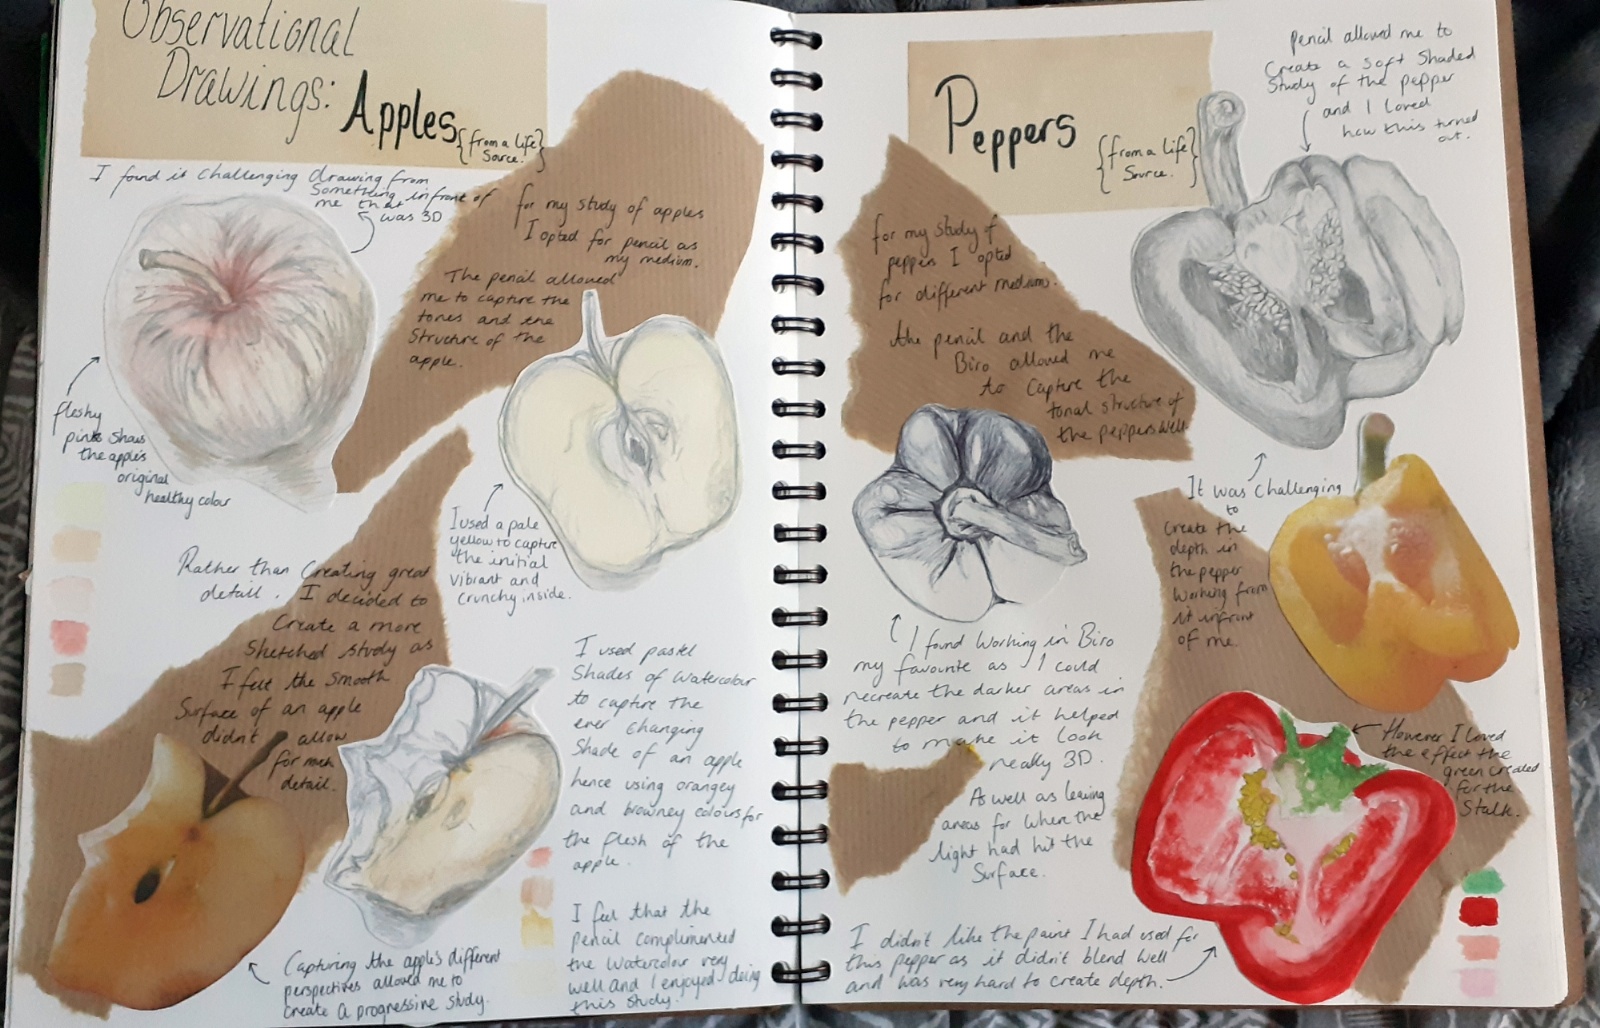 Observational
Drawings: Apples
{from a life
Source.}
I found it challenging drawing from
Something infront of
me that
was 3D
for my study of apples
I opted for pencil as
my medium.
The pencil allowed
me to capture the
tones and the
Structure of the
apple.
fleshy
pinks shows
the apple's
original
healthy colour
I used a pale
yellow to capture
the initial
vibrant and
Crunchy inside.
Rather than Creating great
detail. I decided to
Create a more
Sketched study as
I felt the smooth
Surface of an apple
didn't allow
for much
detail.
I used pastel
Shades of watercolour
to capture the
ever changing
Shade of an apple
hence using orangey
and browney colours for
the flesh of the
apple.
I feel that the
pencil complimented
the watercolour very
well and I enjoyed doing
this study.
Capturing the apple's different
perspectives allowed me to
create a progressive study.
Peppers
{from a life
Source.}
Pencil allowed me to
Create a soft shaded
Study of the pepper
and I loved
how this turned
out.
for my study of
peppers I opted
for different medium.
the pencil and the
Biro allowed me
to capture the
tonal structure of
the peppers well.
It was challenging
to
Create the
depth in
the pepper
working from
it infront
of me.
I found working in Biro
my favourite as I could
recreate the darker areas in
the pepper and it helped
to make it look
really 3D.
As well as leaving
areas for when the
light had hit the
Surface.
However I loved
the effect the
green created
for the
Stalk.
I didn't like the paint I had used for
this pepper as it didn't blend well
and was very hard to create depth.